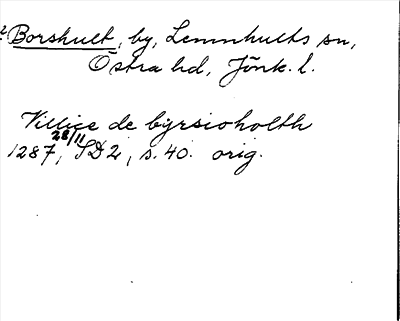 2 Borshult, by, Lemnhults sn,
Östra hd, Jönk. l.
Villice de byrsioholth
28/11
1287, SD 2, s. 40. orig.